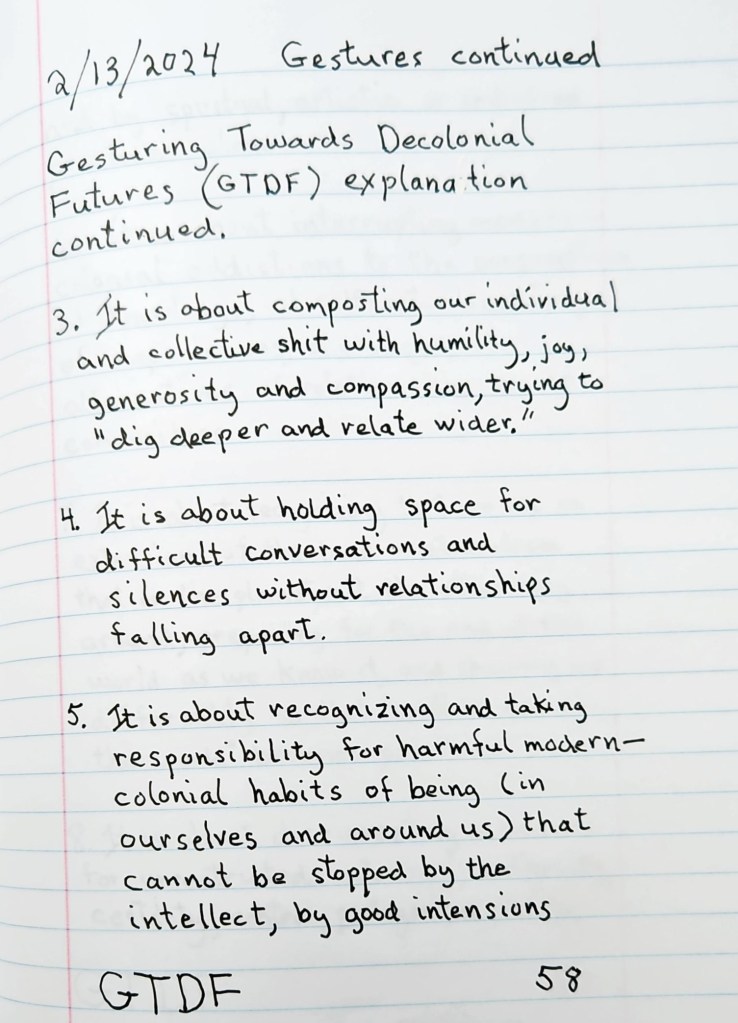 2/13/2024 Gestures continued
Gesturing Towards Decolonial
Futures (GTDF) explanation
continued.
3. It is about composting our individual
and collective shit with humility, joy,
generosity and compassion, trying to
"dig deeper and relate wider."
4. It is about holding space for
difficult conversations and
silences without relationships
falling apart.
5. It is about recognizing and taking
responsibility for harmful modern-
colonial habits of being (in
ourselves and around us) that
cannot be stopped by the
intellect, by good intensions
GTDF 58